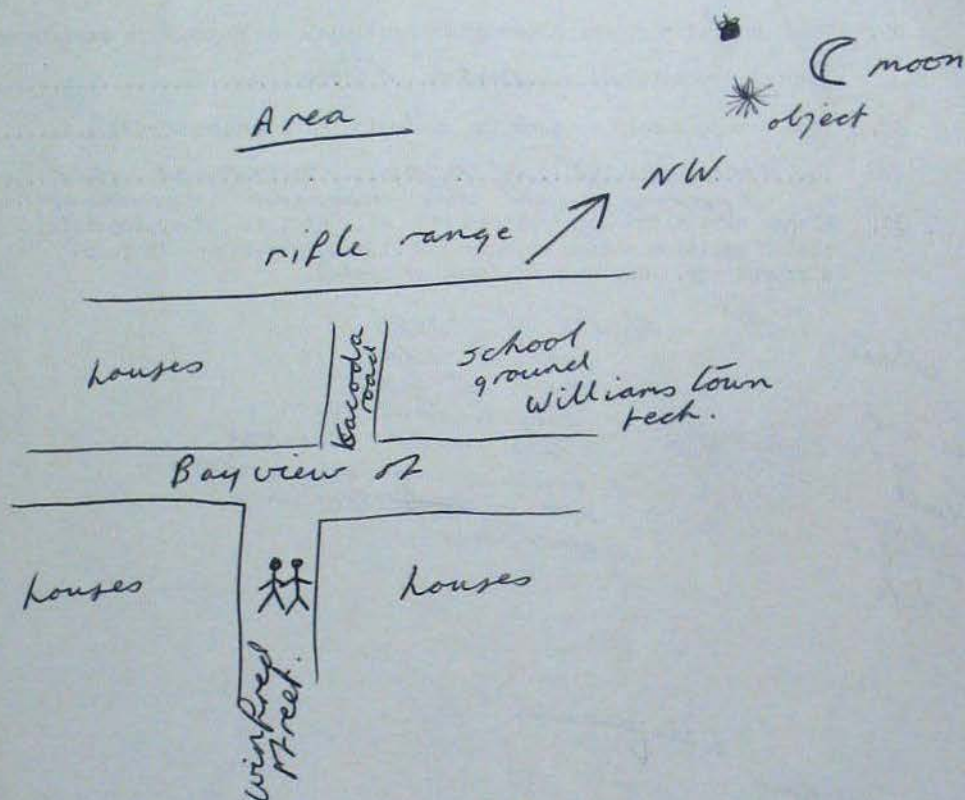 moon
object
Area
NW
rifle range
houses
Kacoda
road
school
ground
Williamstown
tech.
Bayview st
houses
houses
Winifred
street.